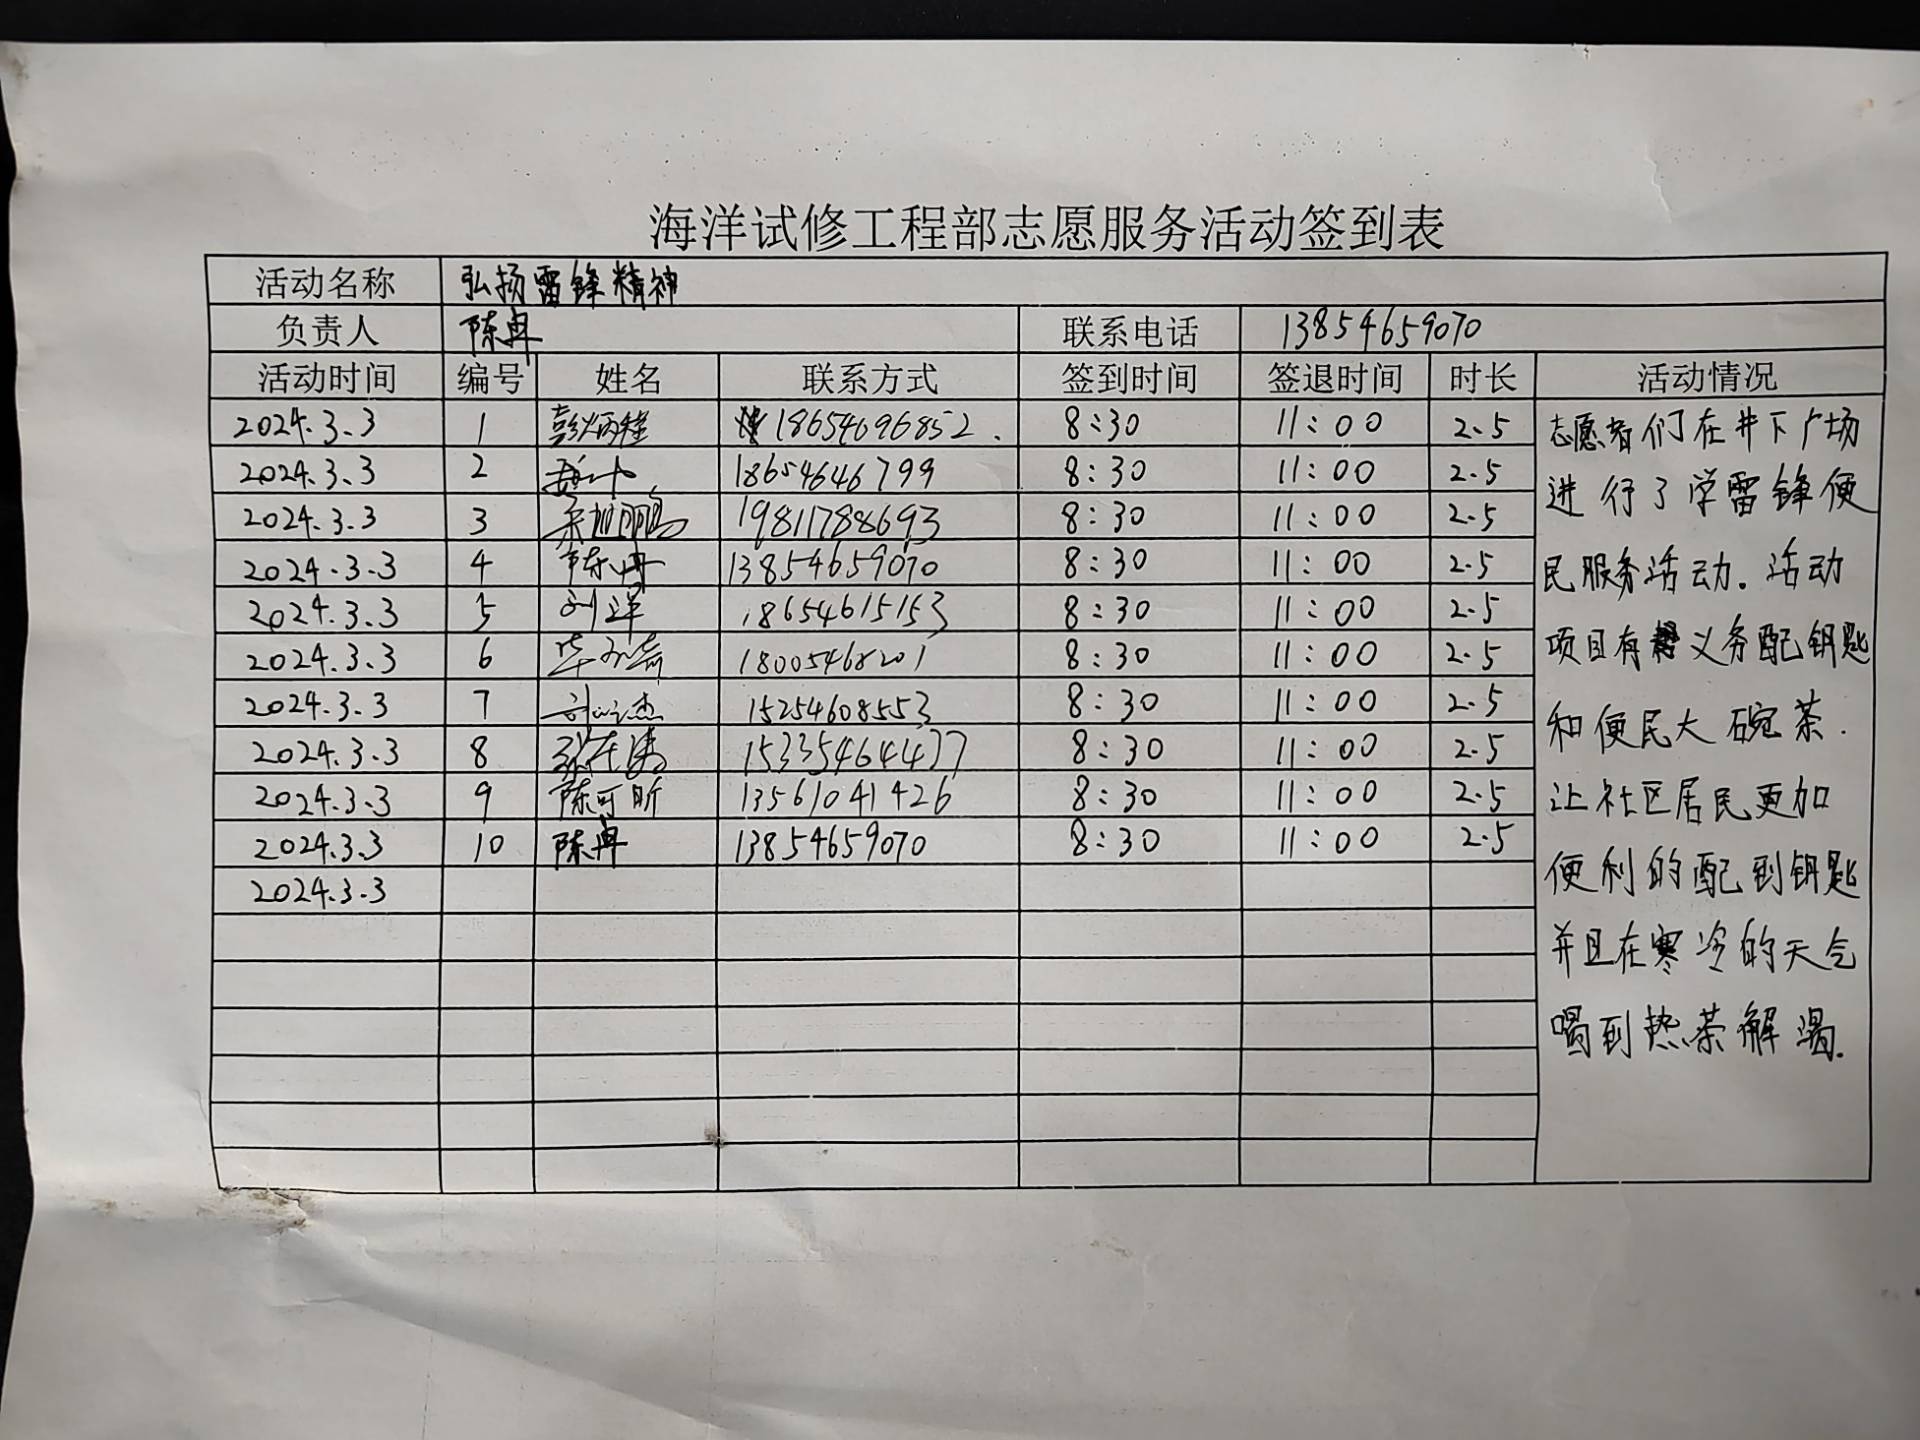 海洋试修工程部志愿服务活动签到表
活动名称 弘扬雷锋精神
负责人 陈冉 联系电话 13854659070
活动时间 编号 姓名 联系方式 签到时间 签退时间 时长 活动情况
2024.3.3 1 18654696852. 8:30 11:00 2.5
2024.3.3 2 18654646799 8:30 11:00 2.5
2024.3.3 3 19811788693 8:30 11:00 2.5
2024.3.3 4 13854659070 8:30 11:00 2.5
2024.3.3 5 刘洋 18654615153 8:30 11:00 2.5
2024.3.3 6 18005468201 8:30 11:00 2.5
2024.3.3 7 15254608553 8:30 11:00 2.5
2024.3.3 8 15335464477 8:30 11:00 2.5
2024.3.3 9 陈可昕 13561041426 8:30 11:00 2.5
2024.3.3 10 陈冉 13854659070 8:30 11:00 2.5
2024.3.3
志愿者们在井下广场
进行了学雷锋便
民服务活动。活动
项目有义务配钥匙
和便民大碗茶.
让社区居民更加
便利的配到钥匙
并且在寒冷的天气
喝到热茶解渴.